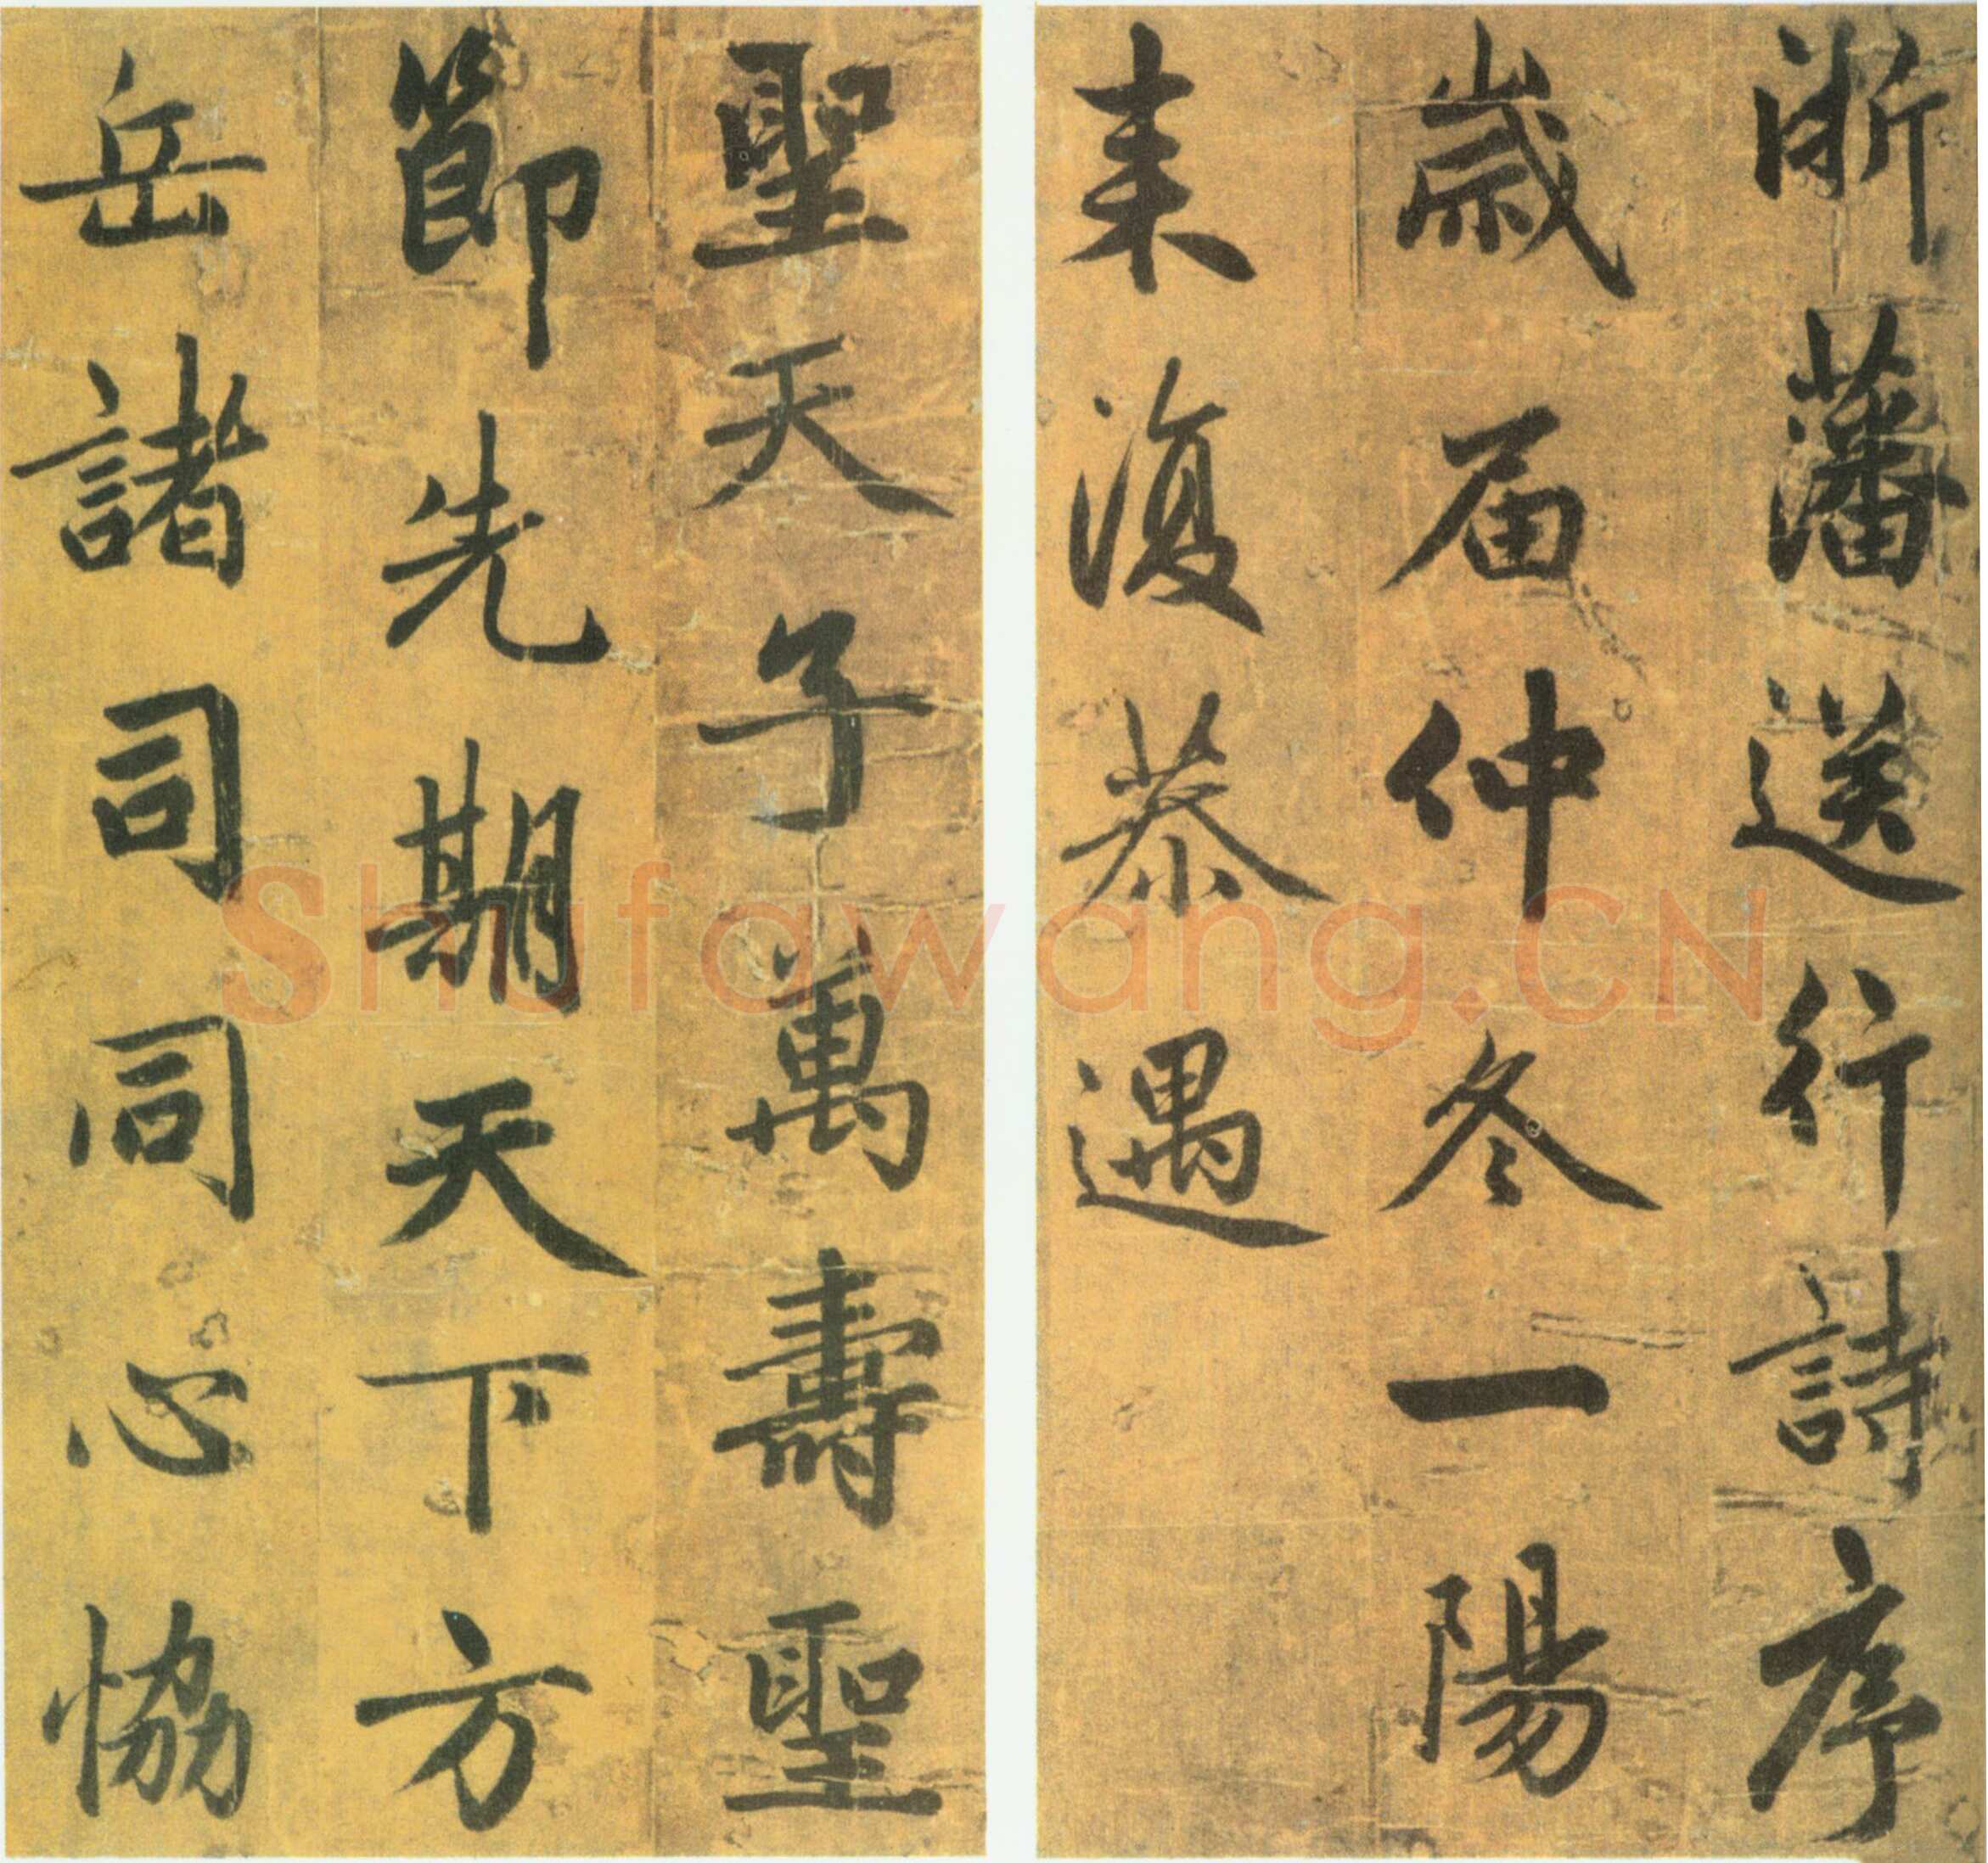 浙藩送行詩序
歲届仲冬一陽
来復恭遇
聖天子萬壽聖
節先期天下方
岳諸司同心恊
Shufawang.CN